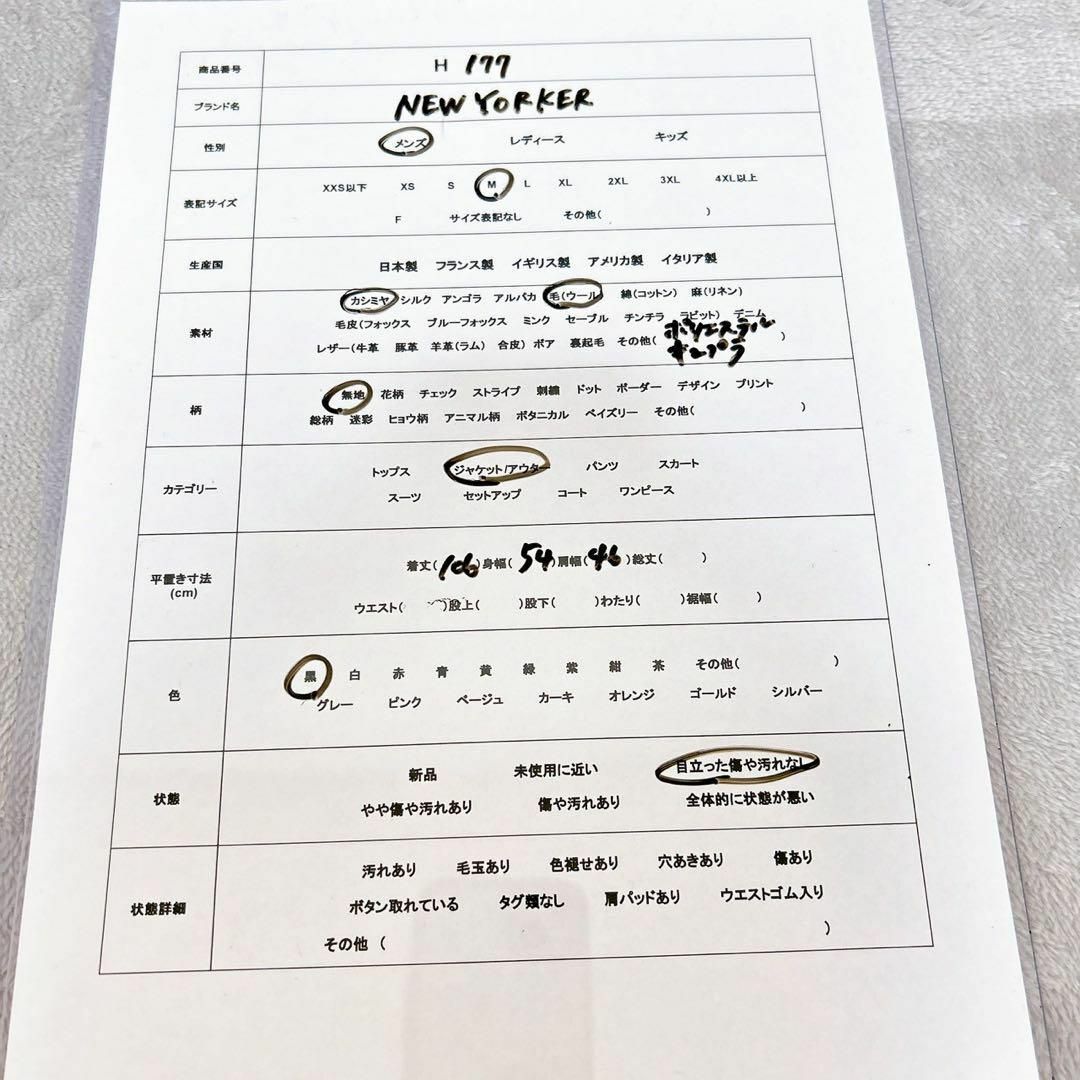 商品番号 H 177
ブランド名 NEW YORKER
性別 メンズ レディース キッズ
表記サイズ XXS以下 XS S M L XL 2XL 3XL 4XL以上
F サイズ表記なし その他( )
生産国 日本製 フランス製 イギリス製 アメリカ製 イタリア製
素材 カシミヤ シルク アンゴラ アルパカ 毛(ウール) 綿(コットン) 麻(リネン)
毛皮(フォックス ブルーフォックス ミンク セーブル チンチラ ラビット) デニム
レザー(牛革 豚革 羊革(ラム) 合皮) ボア 裏起毛 その他( ポリエステル キュプラ )
柄 無地 花柄 チェック ストライプ 刺繍 ドット ボーダー デザイン プリント
総柄 迷彩 ヒョウ柄 アニマル柄 ボタニカル ペイズリー その他( )
カテゴリー トップス ジャケット/アウター パンツ スカート
スーツ セットアップ コート ワンピース
平置き寸法 (cm) 着丈(106)身幅(54)肩幅(46)総丈( )
ウエスト( )股上( )股下( )わたり( )裾幅( )
色 黒 白 赤 青 黄 緑 紫 紺 茶 その他( )
グレー ピンク ベージュ カーキ オレンジ ゴールド シルバー
状態 新品 未使用に近い 目立った傷や汚れなし
やや傷や汚れあり 傷や汚れあり 全体的に状態が悪い
状態詳細 汚れあり 毛玉あり 色褪せあり 穴あきあり 傷あり
ボタン取れている タグ類なし 肩パッドあり ウエストゴム入り
その他 ( )